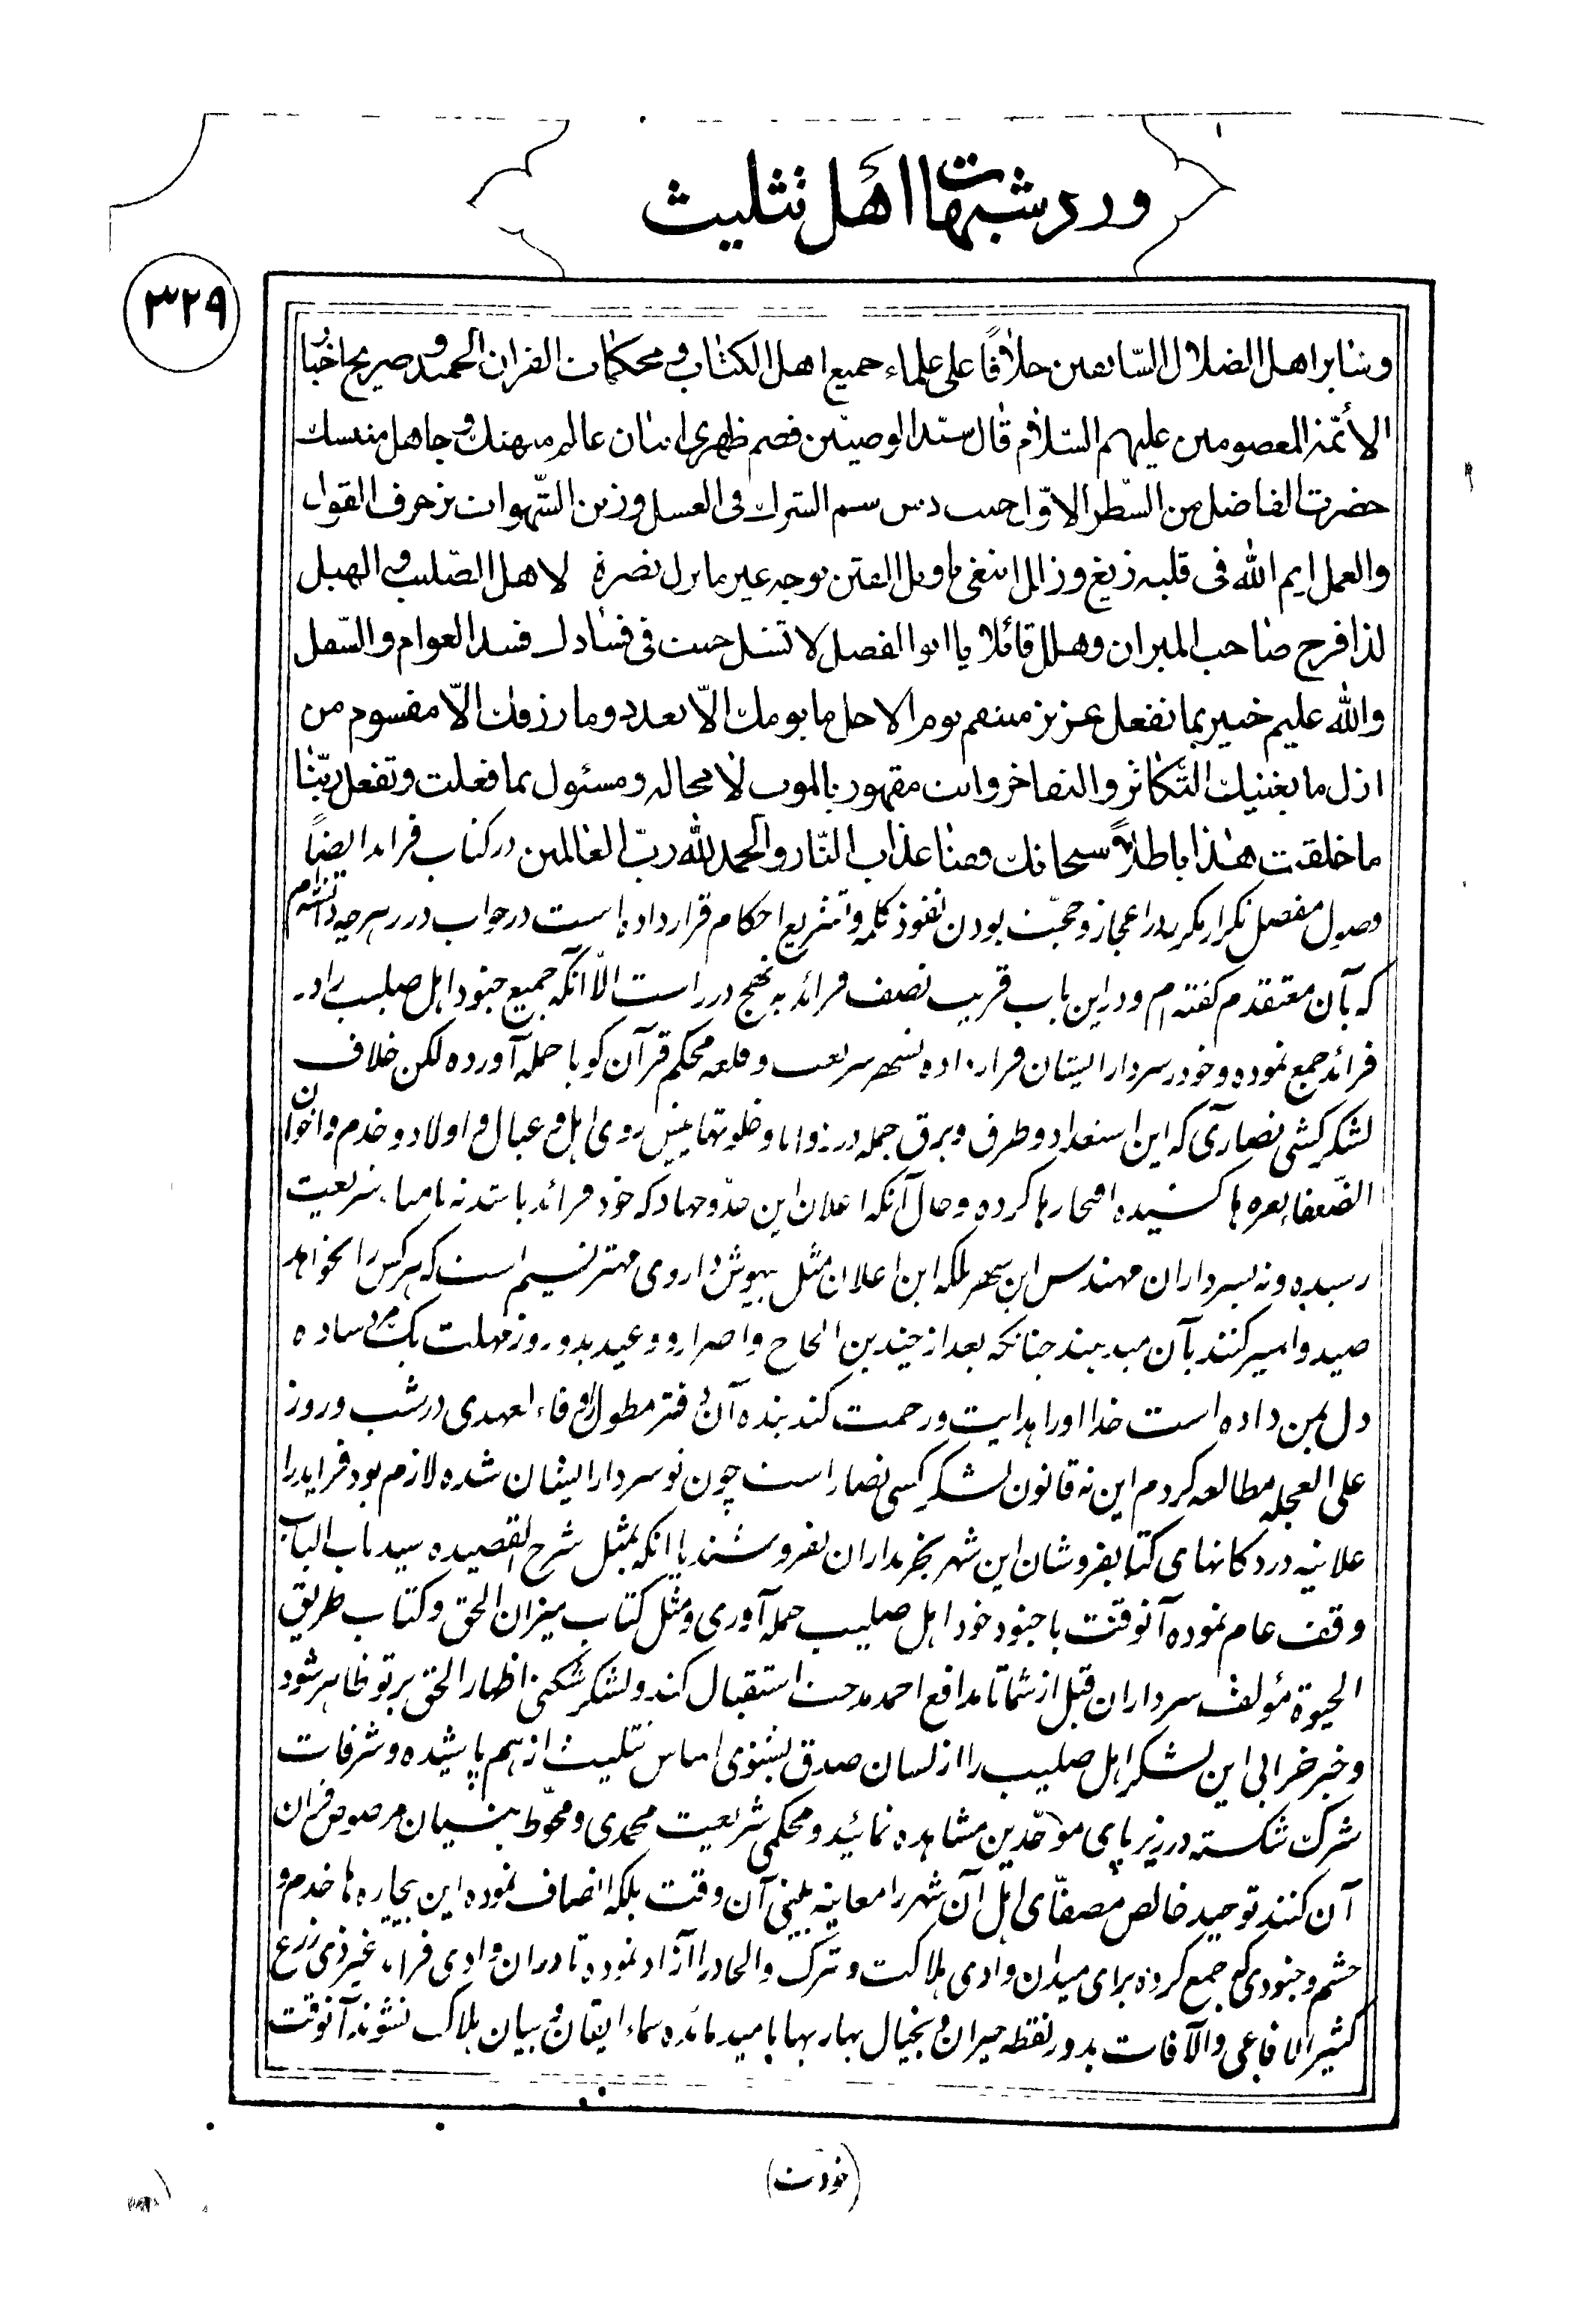 و رد شبهات اهل تثلیث
۳۲۹
و سایر اهل الضلال السابقین خلافًا علی علماء جمیع اهل الکتاب و محکمات القران الحمید و صریح اخبار
الأئمة المعصومین علیهم السّلام قال سیّد الوصیّین قصم ظهری اثنان عالم متهتك و جاهل متنسك
حضرت الفاضل من السّطر الاوّل حیث دس سم الشرك فی العسل و زین الشّهوات بزخرف القول
والعمل ایم الله فی قلبه زیغ و زلل ابتغی تأویل الفتن بوجه غیر ما نزل نصرة لاهل الصّلیب و الهبل
لذا فرح صاحب المیزان و هلل قائلا یا ابوا الفضل لا تنسل حیث فی فسادك فسد العوام و السّفل
والله علیم خبیر بما تفعل عزیز منتقم یوم الاجل ما یومك الّا بعدد و ما رزقك الّا مقسوم من
ازل ما یغنیك التّکاثر و التفاخر وانت مقهور بالموت لا محاله و مسئول بما فعلت و تفعل ربّنا
ما خلقت هٰذا باطلاً سبحانك و قنا عذاب النّار و الحمد لله ربّ العالمین در کتاب فراید ایضاً
فصول مفصل تکرار مکرر در اعجاز و حجّت بودن نفوذ کلمه و تشریع احکام قرار داده است در جواب در هر چه دانسته‌ام
که بآن معتقدم گفته‌ام و در این باب قریب نصف فرائد به نهج در راست الّا آنکه جمیع جنود اهل صلیب را در
فرائد جمع نموده و خود سردار ایشان قرار داده بشهر شریعت و قلعه محکم قرآن گویا حمله آورده لکن خلاف
لشکر کشی نصاری که این استعداد و طرف و برق جمله در زوایا و خلوتها پیش روی اهل و عیال و اولاد و خدم و اخوان
الضّعفاء نعره‌ها کشیده افتخارها کرده و حال آنکه اعلان این جدّ و جهاد که خود فرائد باشد نه بامناء شریعت
رسیده و نه بسرداران مهندس این شهر بلکه این اعلان مثل بیهوش داروی مهتر نسیم است که هر کس را بخواهد
صید و اسیر کنند بآن میدهند چنانکه بعد از چندین الحاح و اصرار و وعید بدو روز مهلت یک مرد ساده
دل بمن داده است خدا او را هدایت و رحمت کند بنده آن دفتر مطول را وفاء لعهدی در شب و روز
علی العجله مطالعه کردم این نه قانون لشکر کشی نصارا است چون تو سردار ایشان شده لازم بود فراید را
علانیه در دکانهای کتابفروشان این شهر بخریداران بفروشند یا آنکه بمثل شرح القصیده سید باب الباب
وقف عام نموده آنوقت با جنود خود اهل صلیب حمله آوری و مثل کتاب میزان الحق و کتاب طریق
الحیوة مؤلف سرداران قبل از شما تا مدافع احمد مدحت استقبال کند و لشکر شکنی اظهار الحق بر تو ظاهر شود
و خبر خرابی این لشکر اهل صلیب را از لسان صدق بشنوی اساس تثلیث از هم پاشیده و شرفات
شرک شکسته در زیر پای موحّدین مشاهده نمائید و محکمی شریعت محمدی و محوّط بنیان مرصوص قران
آن کنند توحید خالص مصفّای اهل آن شهر را معاینه ببینی آن وقت بلکه انصاف نموده این بیچاره‌ها خدم و
حشم و جنودی که جمع کرده برای میدان وادی هلاکت و شرک و الحاد را آزاد نموده تا در ان وادی فراید غیر ذی زرع
کثیر الافاعی و الآفات بدور نقطه حیران و بخیال بهار بها بامید مائده سماء ایقان و بیان هلاک نشوند آنوقت
(خودت)